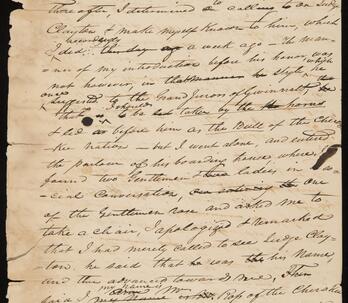 thereafter, I determined to call on Judge
Clayton & make myself known to him, which
I did, accordingly a week ago – The man-
ner of my introduction before his honor, was
not however, in that manner or style, he
once suggested to the Grand Jurors of Gwinnett
that I should to be taken by the horns
& led as before him as the Bull of the Chero-
kee Nation – but I went alone, and entered
the parlour of his boarding house, where I
found two Gentlemen & two ladies in so-
cial Conversation, one
of the Gentlemen rose and asked me to
take a chair, I apologised & remarked
that I had merely called to see Judge Clay-
ton. he said that he was his name,
and then advanced toward me, I then
said my name is Mr. Ross of the Cherokee